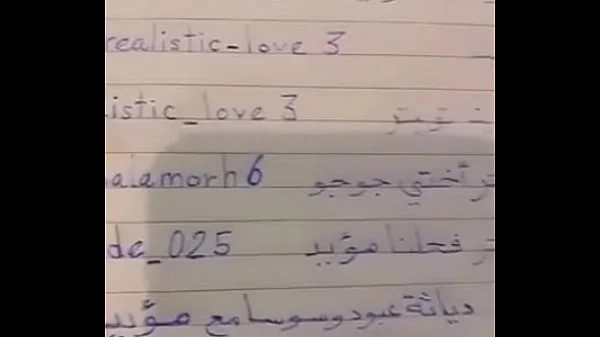 realistic-love 3
istic_love 3 تويتر
alamorh6 تر أختي جوجو
de_025 تر فحلنا مؤيد
دياثة عبود وسوسا مع مؤيد